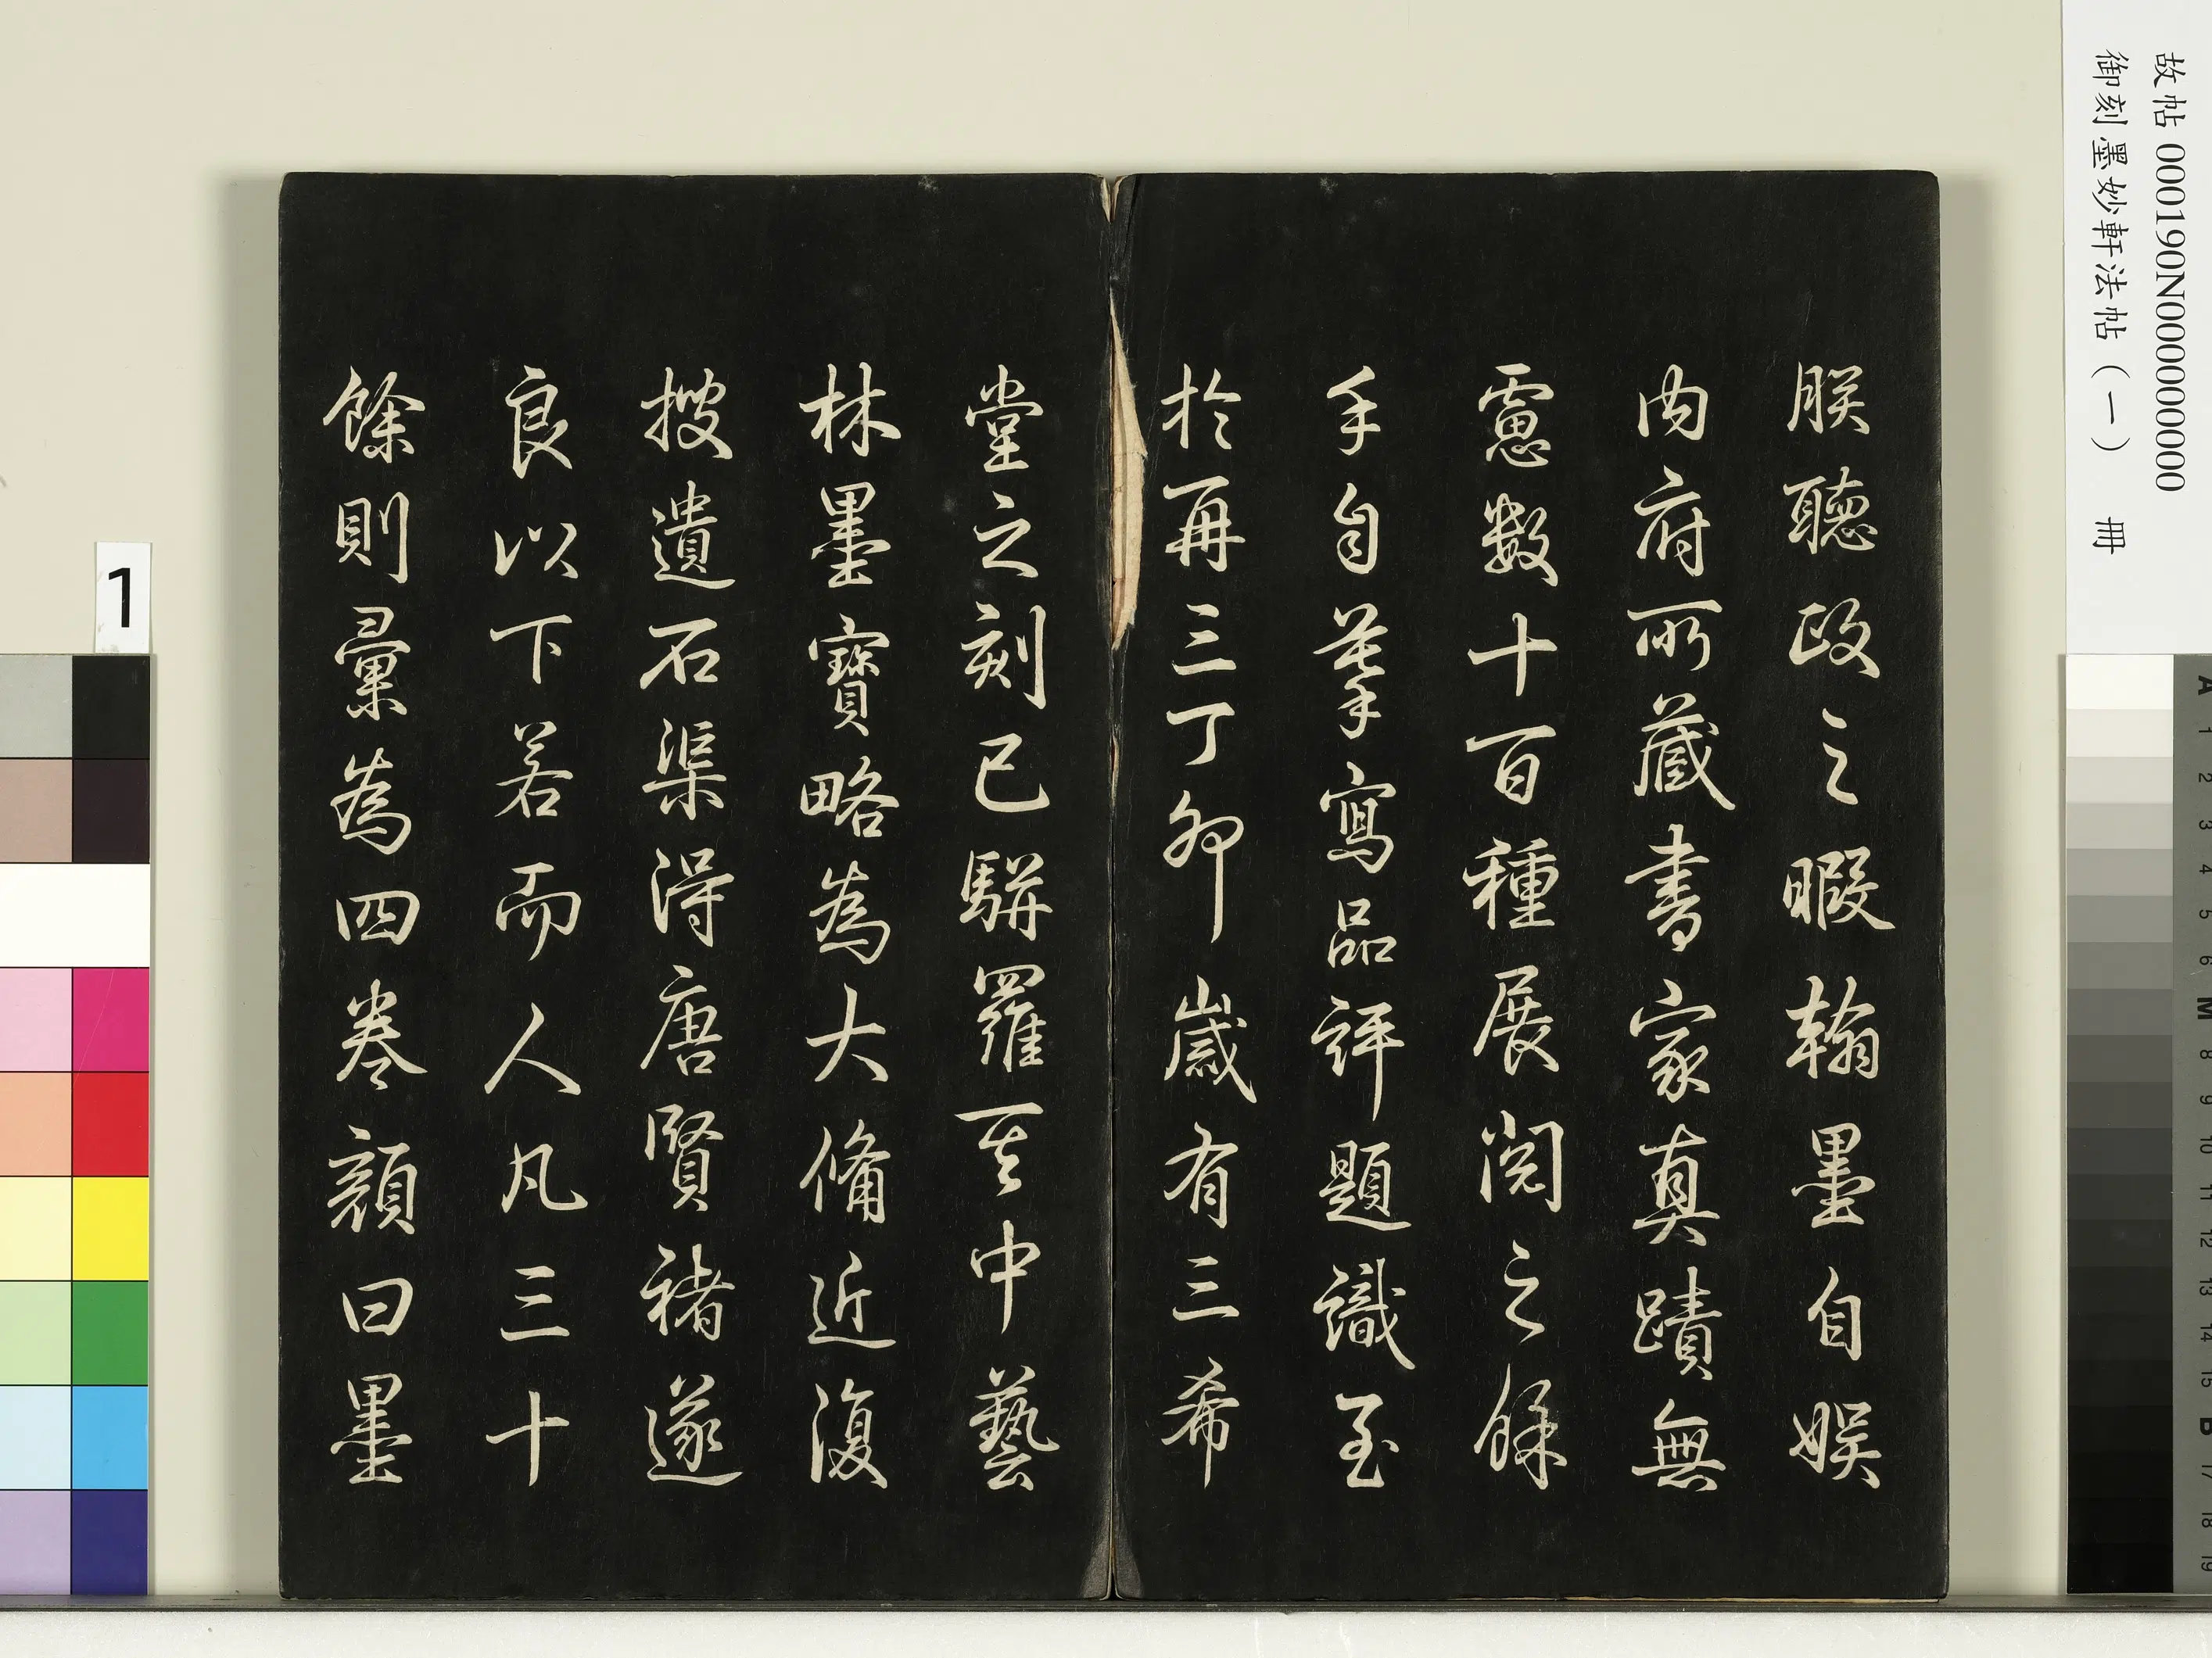 朕聽政之暇翰墨自娛
内府所藏書家真蹟無
慮數十百種展閱之餘
手自摹寫品評題識至
於再三丁卯歲有三希
堂之刻已駢羅其中藝
林墨寶略為大備近復
搜遺石渠得唐賢褚遂
良以下若而人凡三十
餘則彙為四卷顏曰墨
故帖 000190N000000000
御刻墨妙軒法帖(一) 冊
1
A 1 2 3 4 5 6 M 8 9 10 11 12 13 14 15 B 17 18 19